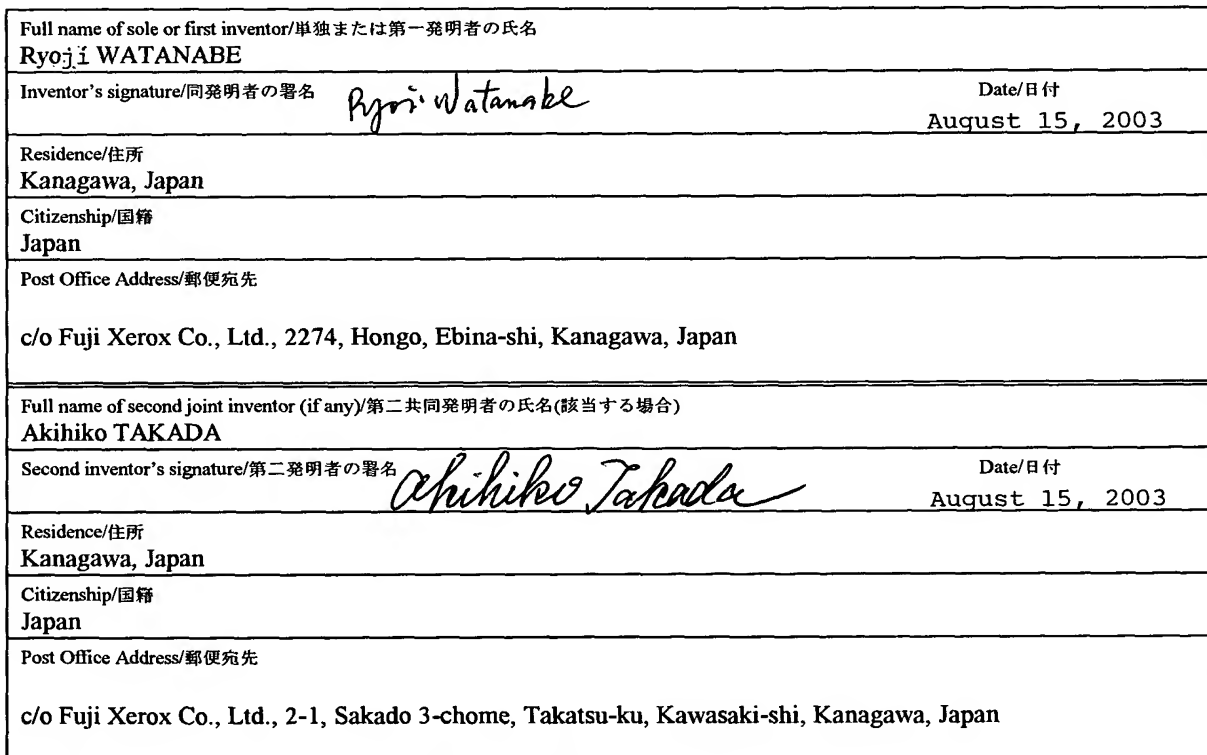 Full name of sole or first inventor/単独または第一発明者の氏名
Ryoji WATANABE
Inventor's signature/同発明者の署名 Ryoji Watanabe Date/日付
August 15, 2003
Residence/住所
Kanagawa, Japan
Citizenship/国籍
Japan
Post Office Address/郵便宛先
c/o Fuji Xerox Co., Ltd., 2274, Hongo, Ebina-shi, Kanagawa, Japan
Full name of second joint inventor (if any)/第二共同発明者の氏名(該当する場合)
Akihiko TAKADA
Second inventor's signature/第二発明者の署名 Akihiko Takada Date/日付
August 15, 2003
Residence/住所
Kanagawa, Japan
Citizenship/国籍
Japan
Post Office Address/郵便宛先
c/o Fuji Xerox Co., Ltd., 2-1, Sakado 3-chome, Takatsu-ku, Kawasaki-shi, Kanagawa, Japan